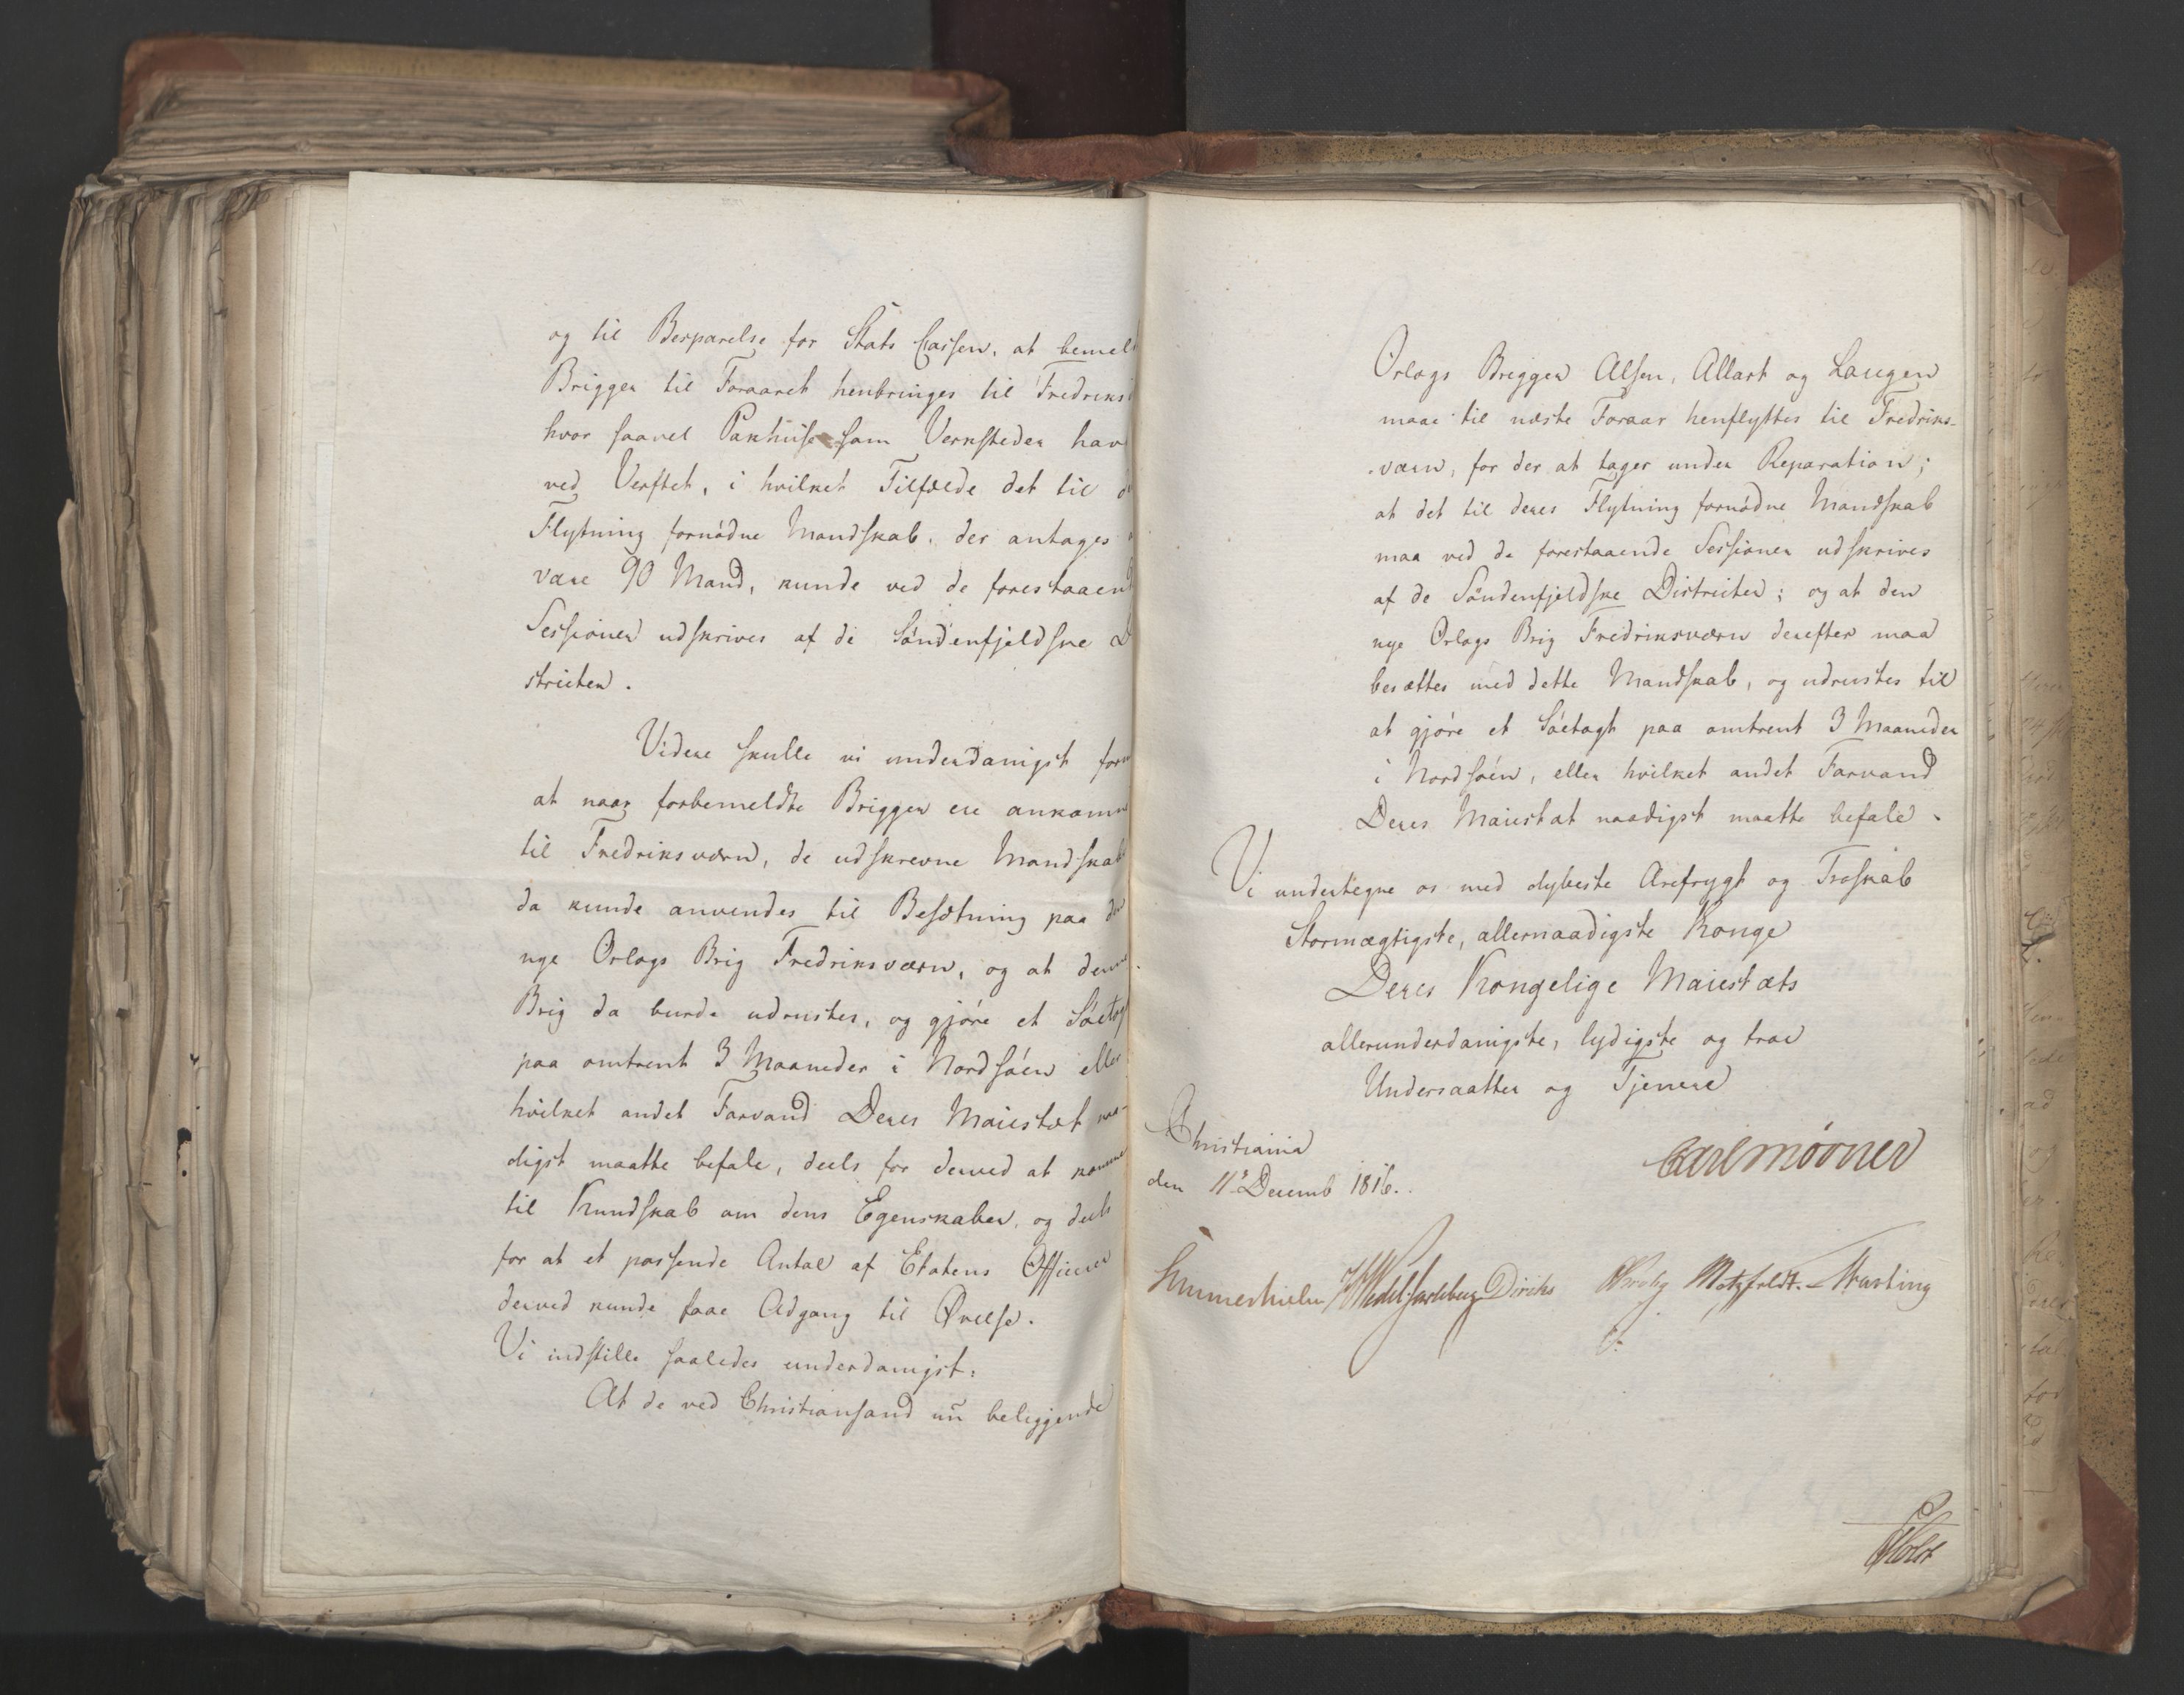 og til Besparelse for Stats Cassen, at bemel
Brigger til Foraaret henbringes til Fredriks
hvor saavel Pakhuse som Verksteder hav
ved Verftet, i hvilket Tilfælde det til d
Flytning fornødne Mandskab, der antages
være 90 Mand, kunde ved de forestaaen
Sessioner udskrives af de Søndenfjeldske D
stricter.
Videre skulle vi underdanigst form
at naar forbemeldte Brigger ere ankomn
til Fredriksværn, de udskrevne Mandskab
da kunde anvendes til Besætning paa den
nye Orlogs Brig Fredriksværn, og at denne
Brig da burde udrustes, og gjøre et Søetog
paa omtrent 3 Maaneder i Nordsøen eller
hvilket andet Farvand Deres Maiestæt naa-
digst maatte befale, deels for derved at komme
til Kundskab om dens Egenskaber, og deels
for at et passende Antal af Etatens Officerer
derved kunde faae Adgang til Øvelse.
Vi indstille saaledes underdanigst:
At de ved Christiansand nu beliggende
Orlogs Brigger Alsen, Allart og Laugen
maae til næste Foraar henflyttes til Fredriks-
værn, for der at tages under Reparation;
at det til deres Flytning fornødne Mandskab
maa ved de forestaaende Sessioner udskrives
af de Søndenfjeldske Districter; og at den
nye Orlogs Brig Fredriksværn derefter maa
besættes med dette Mandskab, og udrustes til
at gjøre et Søetogt paa omtrent 3 Maaneder
i Nordsøen, eller hvilket andet Farvand
Deres Maiestæt naadigst maatte befale.
Vi undertegne os med dybeste Ærefrygt og Troskab
Stormægtigste, allernaadigste Konge
Deres Kongelige Maiestæts
allerunderdanigste, lydigste og troe
Undersaatter og Tjenere
Christiania
den 11te Decemb 1816.
Carl Mörner
Sommerhielm HWedel Jarlsberg Diriks Krohg Motzfeldt. Fasting
Holst